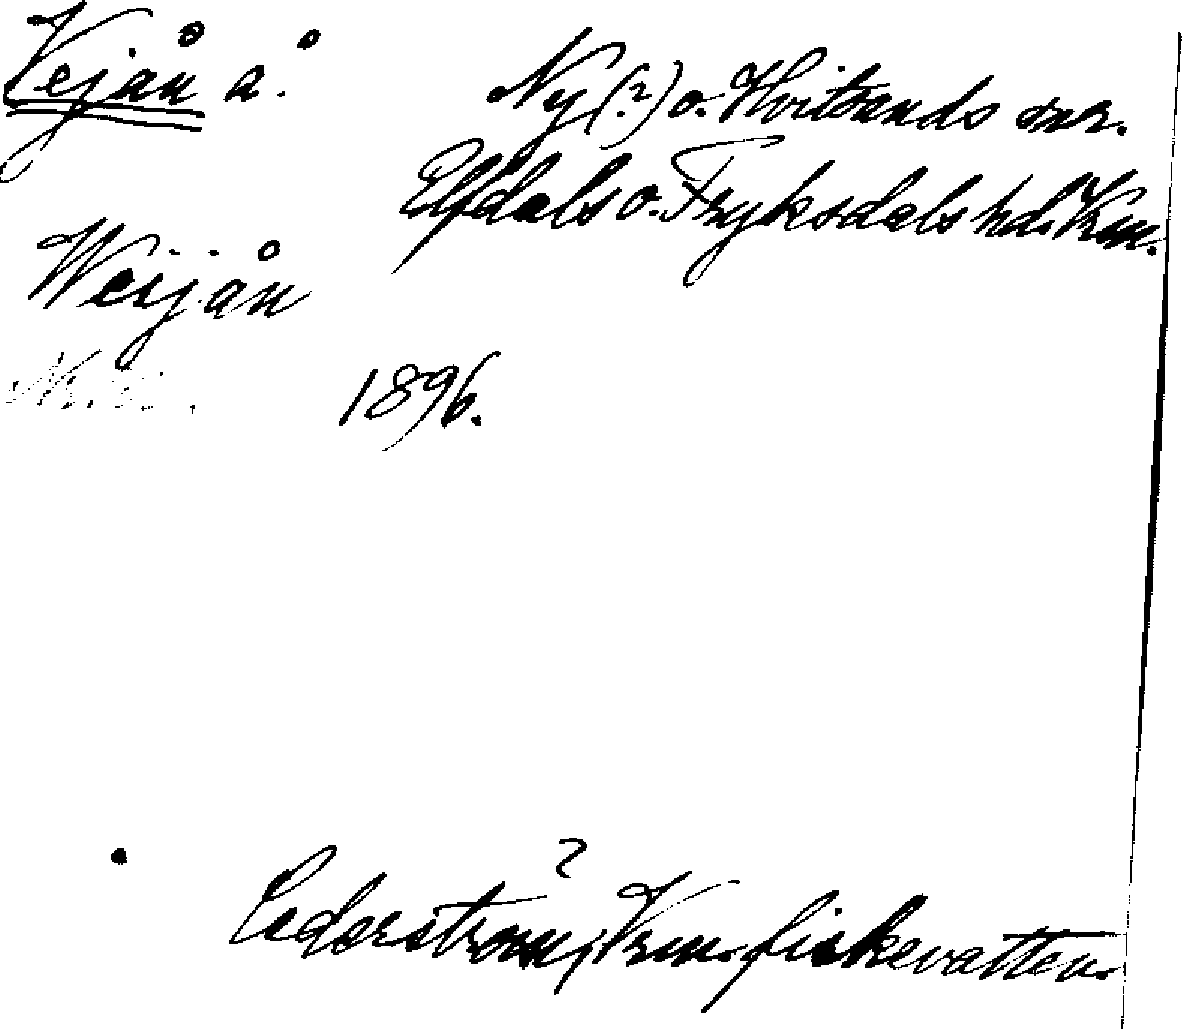 Vejån å.
Ny (?) o. Hvitsands snr.
Elfdals o. Fryksdals hd. Vrm.
Weijån
1896.
Cederström, Vrm. fiskevatten.